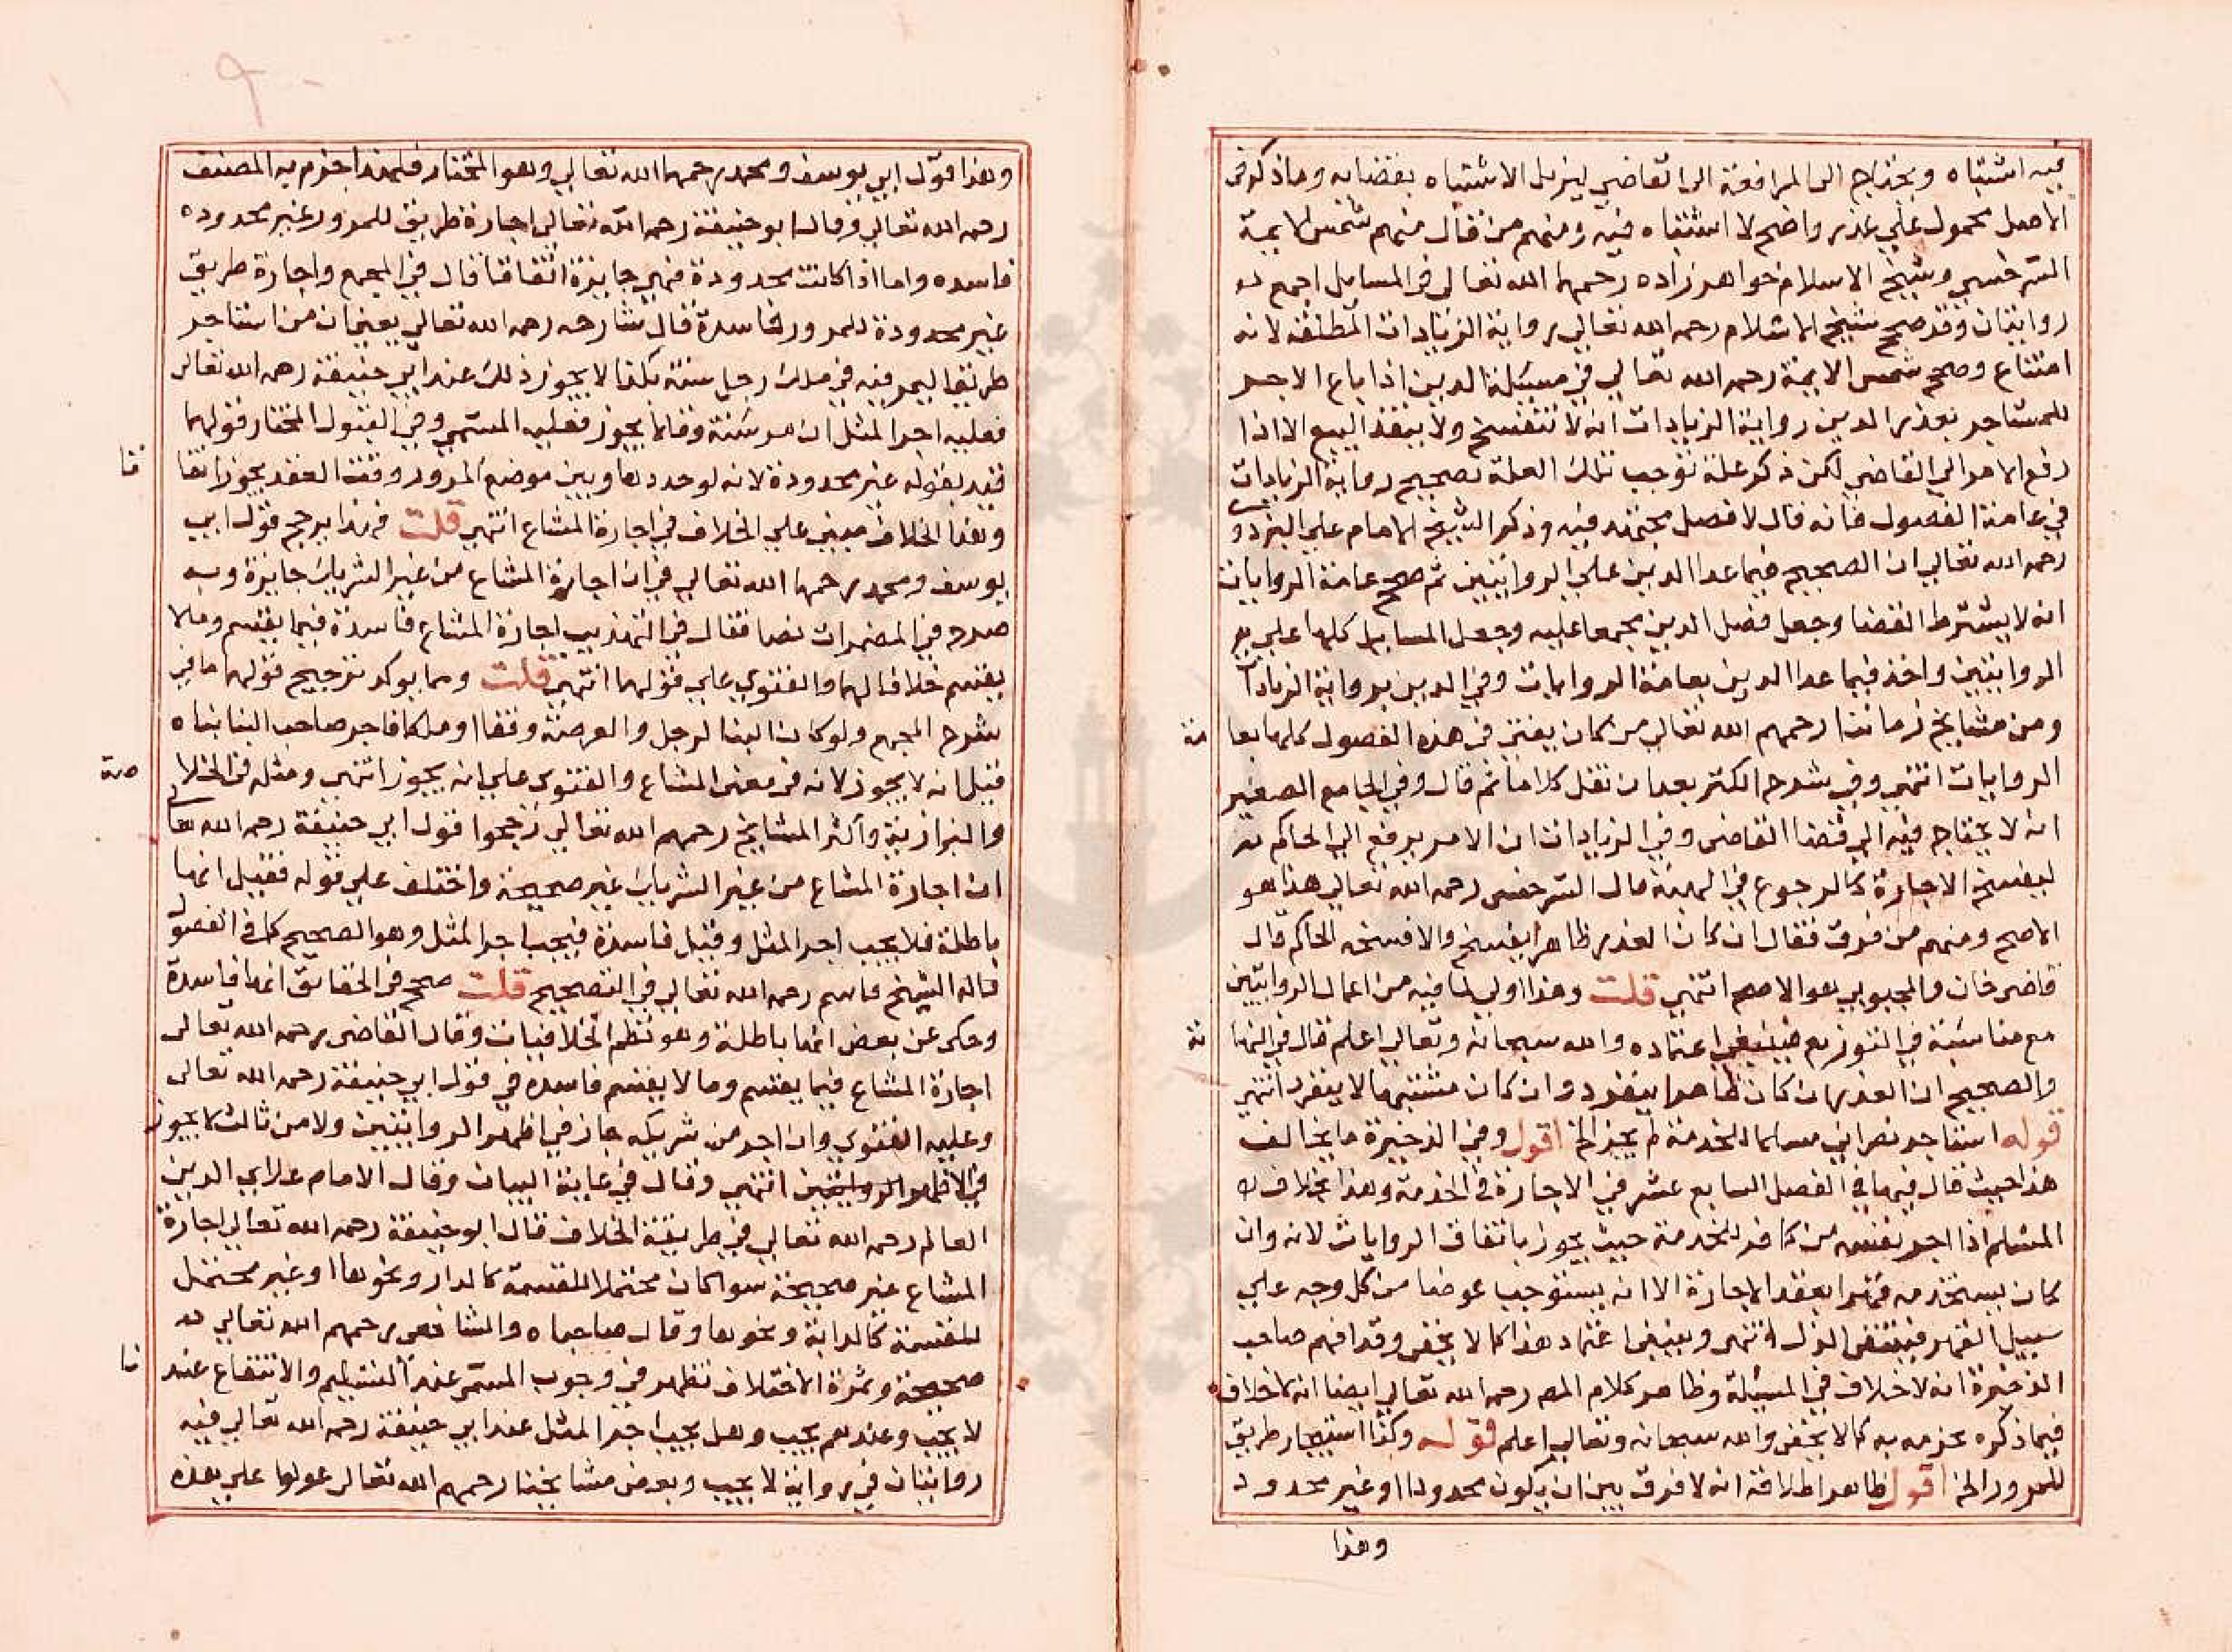 فيه اشتباه ويحتاج الى المرافعة الى القاضي ليزيل الاشتباه بقضائه وما ذكر في
الاصل محمول علي عذر واضح لا اشتباه فيه ومنهم من قال منهم شمس الايمة
السرخسي وشيخ الاسلام خواهر زاده رحمهما الله تعالى في المسايل اجمع
روايتان وقد صحح شيخ الاسلام رحمه الله تعالى رواية الزيادات المطلقة لانه
امتناع وصحح شمس الايمة رحمه الله تعالي في مسئلة الدين اذا باع الاجر
للمستاجر بعذر الدين رواية الزيادات انه لا تنفسخ ولا ينفذ البيع الا اذا
رفع الامر الي القاضي لكن ذكر علة توجب تلك العلة تصحيح رواية الزيادات
في عامة الفصول فانه قال لا فصل مجتهد فيه وذكر الشيخ الامام علي البزدوي
رحمه الله تعالي ان الصحيح فيما عدا الدين علي الروايتين ثم صحح عامة الروايات
انه لا يشترط القضا وجعل فصل الدين مجمعا عليه وجعل المسايل كلها علي
الروايتين واخذ فيما عدا الدين بعامة الروايات وفي الدين برواية الزيادات
ومن مشايخ زماننا رحمهم الله تعالي من كان يفتي في هذه الفصول كلها بعا
مة
الروايات انتهي وفي شرح الكنز بعد ان نقل كلاما ثم قال وفي الجامع الصغير
انه لا يحتاج فيه الي قضا القاضي وفي الزيادات ان الامر يرفع الي الحاكم
ليفسخ الاجارة كالرجوع في الهبة قال السرخسي رحمه الله تعالي هذا هو
الاصح ومنهم من فرق فقال ان كان العذر ظاهرا يفسخ والا فسخه الحاكم قال
قاضي خان والمحبوبي هو الاصح انتهي قلت وهذا اولي لما فيه من اعمال الروايتين
مع مناسبة في التوزيع فينبغي اعتماده والله سبحانه وتعالي اعلم قال في النها
ية
والصحيح ان العذر ان كان ظاهرا ينفرد وان كان مشتبها لا ينفرد انتهي
قوله استاجر نصراني مسلما للخدمة لم يجز الخ اقول وفي الذخيرة ما يخالف
هذا حيث قال فيها في الفصل السابع عشر في الاجارة في الخدمة وهذا بخلاف
المسلم اذا اجر نفسه من كافر للخدمة حيث يجوز باتفاق الروايات لانه وان
كان يستخدمه قهرا بعقد الاجارة الا انه يستوجب عوضا من كل وجه علي
سبيل القهر فينتفي الذل انتهي وينبغي اعتماد هذا كما لا يخفي وقد افهم صاحب
الذخيرة انه لا خلاف في المسئلة وظاهر كلام المص رحمه الله تعالي ايضا انه لا خلاف
فيما ذكره بجزمه به كما لا يخفي والله سبحانه وتعالي اعلم قوله وكذا استيجار طريق
للمرور الخ اقول ظاهر اطلاقه انه لا فرق بين ان يكون محدودا او غير محدود
وهذا
وهذا قول ابي يوسف ومحمد رحمهما الله تعالي وهو المختار فلهذا جزم به المصنف
رحمه الله تعالي وقال ابو حنيفة رحمه الله تعالي اجارة طريق للمرور غير محدوده
فاسده واما اذا كانت محدودة فهي جايزة اتفاقا قال في المجمع واجارة طريق
غير محدودة للمرور فاسدة قال شارحه رحمه الله تعالي يعني ان من استاجر
طريقا ليمر فيه في ملك رجل سنة بكذا لا يجوز ذلك عند ابي حنيفة رحمه الله تعالى
فعليه اجر المثل ان مر سنة وقالا يجوز فعليه المسمي وفي العيون المختار قولهما
قيد بقوله غير محدودة لانه لو حددها وبين موضع المرور وقت العقد يجوز اتفا
قا
وهذا الخلاف مبني علي الخلاف في اجارة المشاع انتهي قلت فهذا يرجح قول ابي
يوسف ومحمد رحمهما الله تعالي في ان اجارة المشاع من غير الشريك جايزة وبه
صرح في المضمرات نصا فقال في التهذيب اجارة المشاع فاسدة فيما يقسم ومالا
يقسم خلافا لهما والفتوي علي قولهما انتهي قلت ومما يوكد ترجيح قولهما ما في
شرح المجمع ولو كان البنا لرجل والعرصة وقفا او ملكا فاجر صاحب البنا بناه
قيل انه لا يجوز لانه في معنى المشاع والفتوى علي انه يجوز انتهي ومثله في الخلا
صة
والبزازية واكثر المشايخ رحمهم الله تعالي رجحوا قول ابي حنيفة رحمه الله تعا
ان اجارة المشاع من غير الشريك غير صحيحة واختلف علي قوله فقيل انها
باطلة فلا يجب اجر المثل وقيل فاسدة فيجب اجر المثل وهو الصحيح كما في الفصول
قاله الشيخ قاسم رحمه الله تعالي في التصحيح قلت صحح في الحقايق انها فاسدة
وحكي عن بعض انها باطلة وهو نظم الخلافيات وقال القاضي رحمه الله تعالى
اجارة المشاع فيما يقسم وما لا يقسم فاسده في قول ابي حنيفة رحمه الله تعالى
وعليه الفتوي وان اجر من شريكه جاز في اظهر الروايتين ولا من ثالث لا يجوز
في الاظهر الروايتين انتهي وقال في غاية البيان وقال الامام علاي الدين
العالم رحمه الله تعالي في طريقة الخلاف قال ابو حنيفة رحمه الله تعالي اجارة
المشاع غير صحيحة سوا كان محتملا للقسمة كالدار ونحوها او غير محتمل
للقسمة كالدابة ونحوها وقال صاحباه والشافعي رحمهم الله تعالي
صحيحة وثمرة الاختلاف تظهر في وجوب المسمى عند التسليم والانتفاع عند
لا يجب وعندهم يجب وهل يجب اجر المثل عند ابي حنيفة رحمه الله تعالي فيه
روايتان في رواية لا يجب وبعض مشايخنا رحمهم الله تعالى عولوا علي هذه